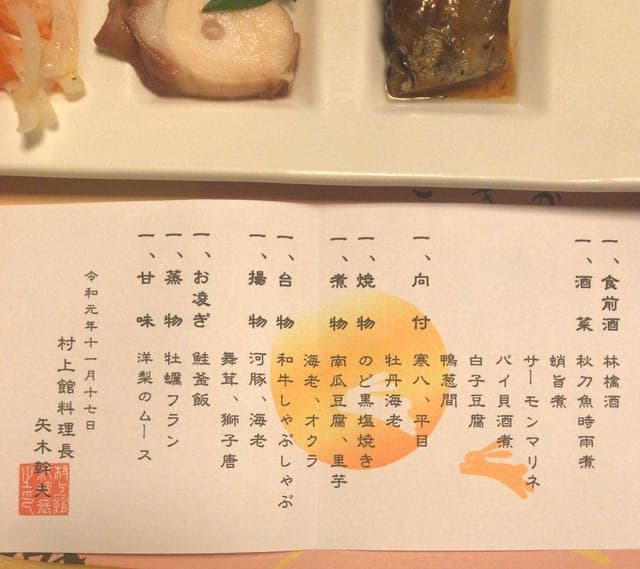 一、食前酒　林檎酒
一、酒菜　秋刀魚時雨煮
蛸旨煮
サーモンマリネ
バイ貝酒煮
白子豆腐
鴨葱間
一、向付　寒八、平目
牡丹海老
一、焼物　のど黒塩焼き
一、煮物　南瓜豆腐、里芋
海老、オクラ
一、台物　和牛しゃぶしゃぶ
一、揚物　河豚、海老
舞茸、獅子唐
一、お凌ぎ　鮭釜飯
一、蒸物　牡蠣フラン
一、甘味　洋梨のムース
令和元年十一月十七日
村上館料理長
矢木幹夫